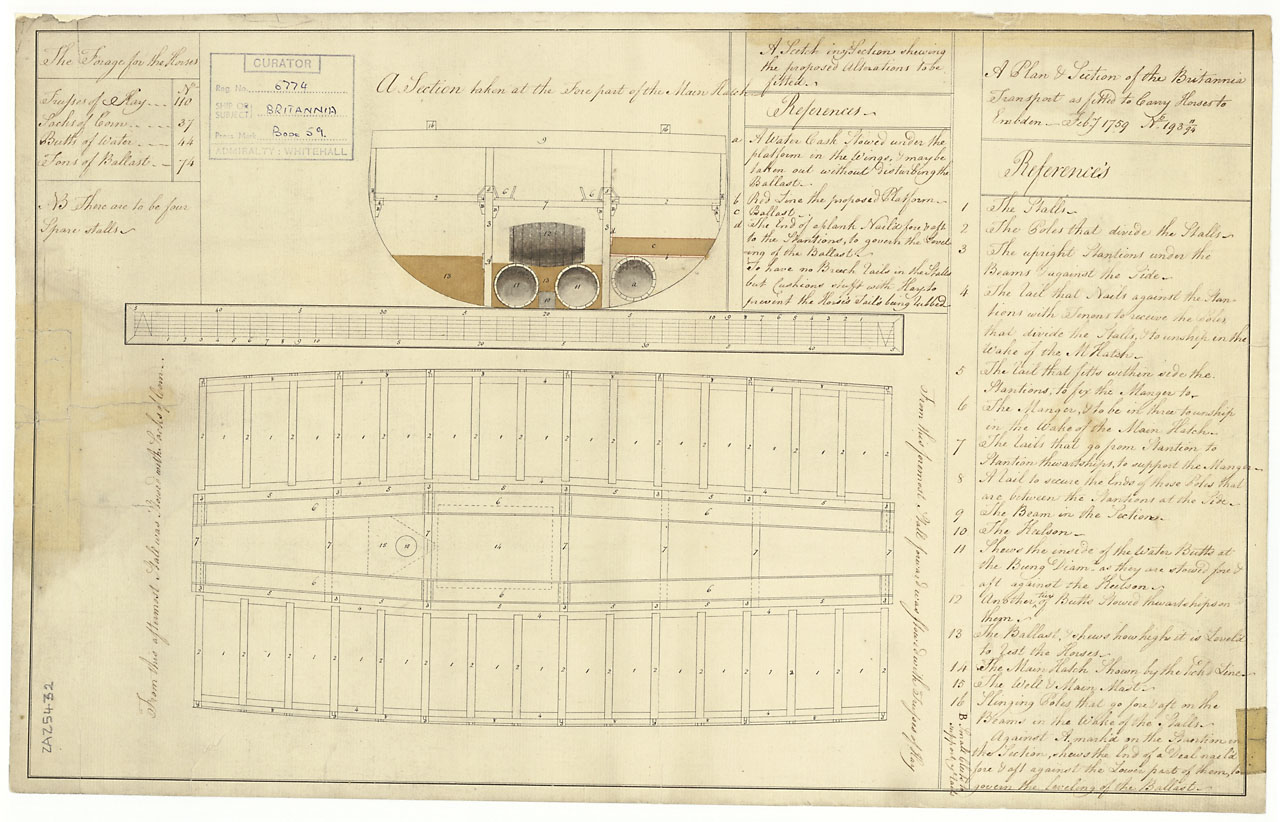 The Forage for the Horses
No
Trusses of Hay 110
Sacks of Corn 37
Butts of Water 44
Tons of Ballast 74
NB There are to be four
Spare Stalls
CURATOR
Reg. No. 6774
SHIP OR SUBJECT: BRITANNIA
Press Mark Box 59.
ADMIRALTY: WHITEHALL
A Section taken at the Fore part of the Main Hatch
A Scetch in Section shewing
the proposed Alterations to be
fitted
References
a A Water Cask Stowed under the
platform in the Wings, & may be
taken out without disturbing the
Ballast
b Red Line the proposed Platform
c Ballast
d The End of a plank Naild fore & aft
to the Stantions, to govern the Level
ing of the Ballast
To have no Breech Rails in the Stalls
but Cushions stuft with Hay to
prevent the Horses Tails being rubbed
A Plan & Section of the Britannia
Transport as fitted to Carry Horses to
Embden Feby 1759 No. 193
References
1 The Stalls
2 The Poles that divide the Stalls
3 The upright Stantions under the
Beams & against the Side
4 The Rail that Nails against the Stan-
tions with Tenons to receive the Poles
that divide the Stalls, & to unship in the
Wake of the M Hatch
5 The Rail that fitts within side the
Stantions, to fix the Manger to
6 The Manger, & to be in three to unship
in the Wake of the Main Hatch
7 The Rails that go from Stantion to
Stantion thwartships, to support the Manger
8 A Rail to secure the Ends of those Poles that
are between the Stantions at the Side
9 The Beam in the Section
10 The Keelson
11 Shews the inside of the Water Butts at
the Bung Diamr as they are stowed fore &
aft against the Keelson
12 Another tier of Butts Stowed thwartships on
them
13 The Ballast, & shews how high it is Leveld
to Rest the Horses
14 The Main Hatch Shown by the Tick'd Line
15 The Well & Main Mast
16 Slinging Poles that go fore & aft on the
Beams in the Wake of the Stalls
Against A, markd on the Stantion in
the Section, shews the End of a Deal naild
fore & aft against the Lower part of them, to
govern the leveling of the Ballast
B Small Cleats to
support y Rails
From this aftermost Stall was Stowd with Sacks of Corn
From this foremost Stall forward was stow'd with Trusses of Hay
ZAZ5432